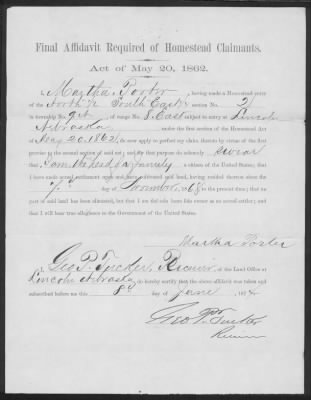 Final Affidavit Required of Homestead Claimants.
Act of May 20, 1862.
I, Martha Porter, having made a Homestead entry
of the North ½ South East ¼ section No. 2
in township No. 9 N of range No. 8 East subject to entry at Lincoln
Nebraska under the first section of the Homestead Act
of May 20, 1862 do now apply to perfect my claim thereto by virtue of the first
proviso to the second section of said act; and for that purpose do solemnly swear
that I am the head of a family a citizen of the United States; that I
have made actual settlement upon and have cultivated said land, having resided thereon since the
7th day of November, 1868, to the present time; that no
part of said land has been alienated, but that I am the sole bona fide owner as an actual settler; and
that I will bear true allegiance to the Government of the United States.
Martha Porter
I, Geo. P. Tucker, Receiver, of the Land Office at
Lincoln Nebraska do hereby certify that the above affidavit was taken and
subscribed before me this 8th day of June, 1874
Geo. P. Tucker